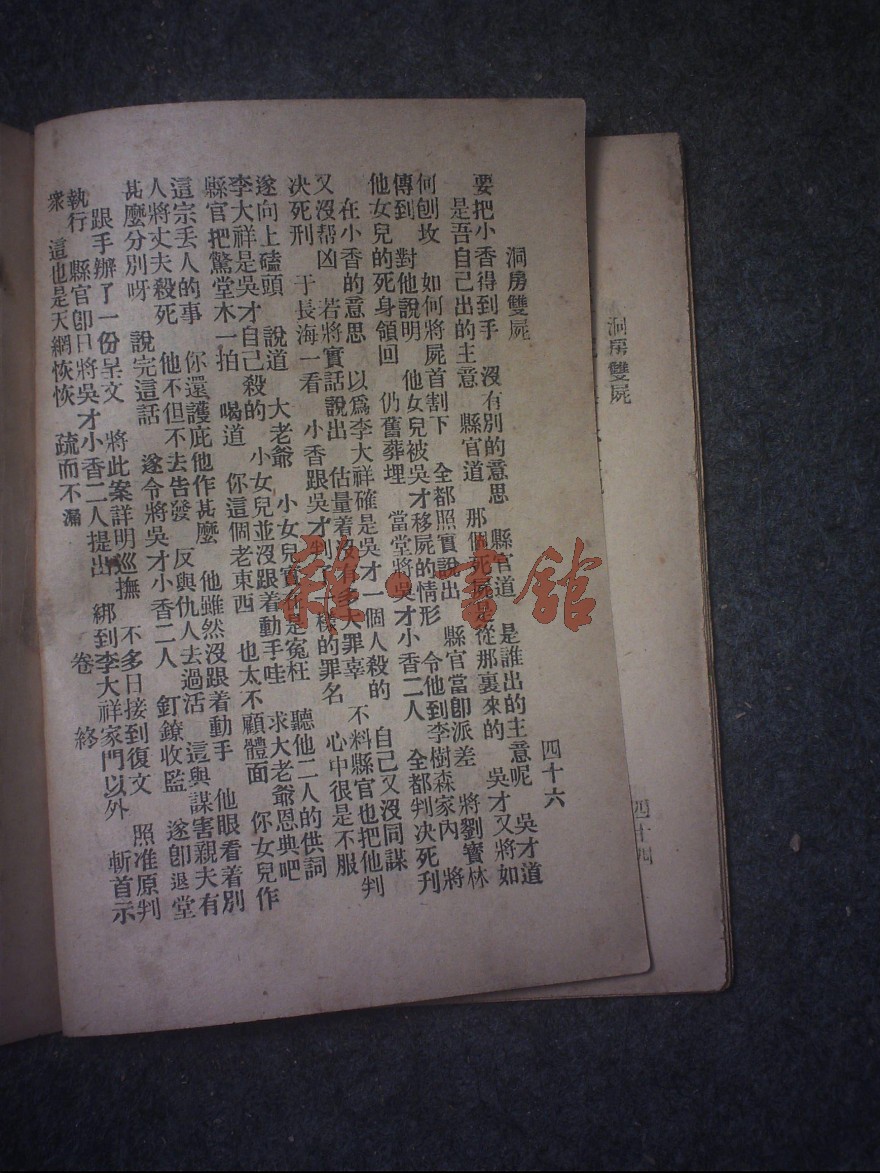 洞房雙屍
四十四
洞房雙屍 四十六
要把小香得到手 沒有別的意思 縣官道 是誰出的主意呢 吳才道
是吾自己出的主意 縣官道 那個死屍是從那裏來的 吳才又將如
何刨坟 如何將屍首割下 全都照實說出 縣官當卽派差 將劉寳林
傳到 對他說明 他女兒被吳才移屍的情形 令他到李樹森家內 將
他女兒的死身領回 仍舊葬埋 當堂將吳才小香二人 全都判決死刋
在小香的意思 以爲李大祥確是吳才一個人殺的 自己又沒同謀
又沒帮凶 若將實話說出 估量着沒有多大罪辜 不料縣官也把他判
決死刑 于長海一看 小香跟吳才判了一樣的罪名 心中很是不服
遂向上磕頭 說道 大老爺 小女兒實在是冤枉 聽他二人的供詞
李大祥是吳才自己殺的 小女兒並沒跟着動手哇 求大老爺恩典吧
縣官把驚堂木一拍 喝道 你這個老東西 也太不顧體面 你女兒作
這宗丟人的事 你還護庇他作甚麼 他雖然沒跟着動手 他眼看着別
人將丈夫殺死 他不但不去告發 反與仇人去過活 這與謀害親夫有
甚麼分別呀 說完這話 遂令將吳才小香二人 釘鐐收監 遂卽退堂
跟手辦了一份呈文 將此案詳明巡撫 不多日接到復文 照准原判
執行 縣官卽日將吳才小香二人提出 綁到李大祥家門以外 斬首示
衆 這也是天網恢恢 疏而不漏 卷終
雜·書館